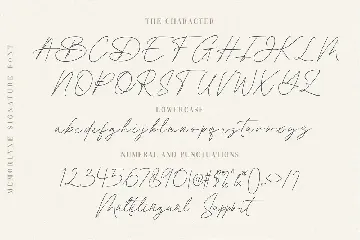 THE CHARACTED
ABCDEFGHIJKLM
NOPQRSTUVWXYZ
LOWERCASE
abcdefghijklmnopqrstuvwxyz
NUMERAL AND PUNCTUATIONS
1234567890!@#$%^&*()<>/?
Multilingual Support